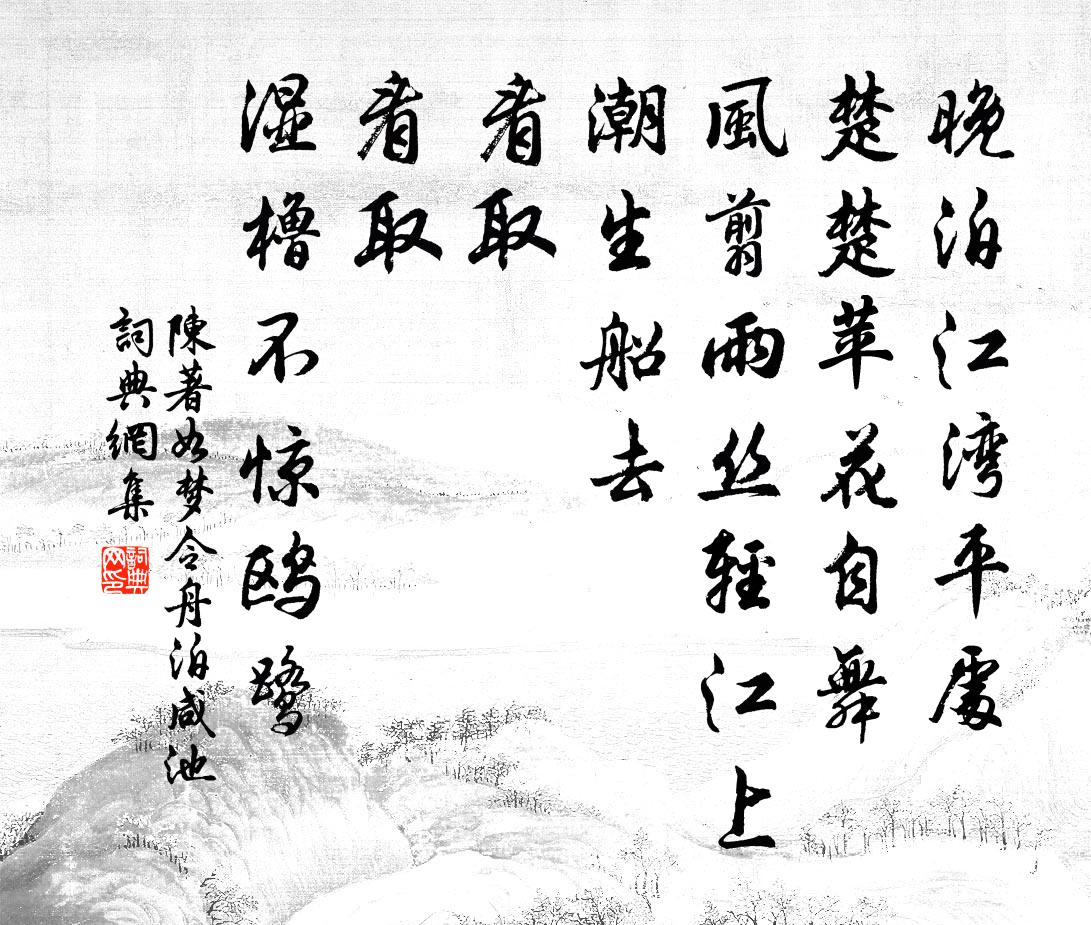 晚泊江湾平處
楚楚苹花自舞
風剪雨丝輕江上
潮生船去
看取
看取
湿櫓不惊鸥鹭
陳著如梦令舟泊咸池
詞典網集
詞典网印